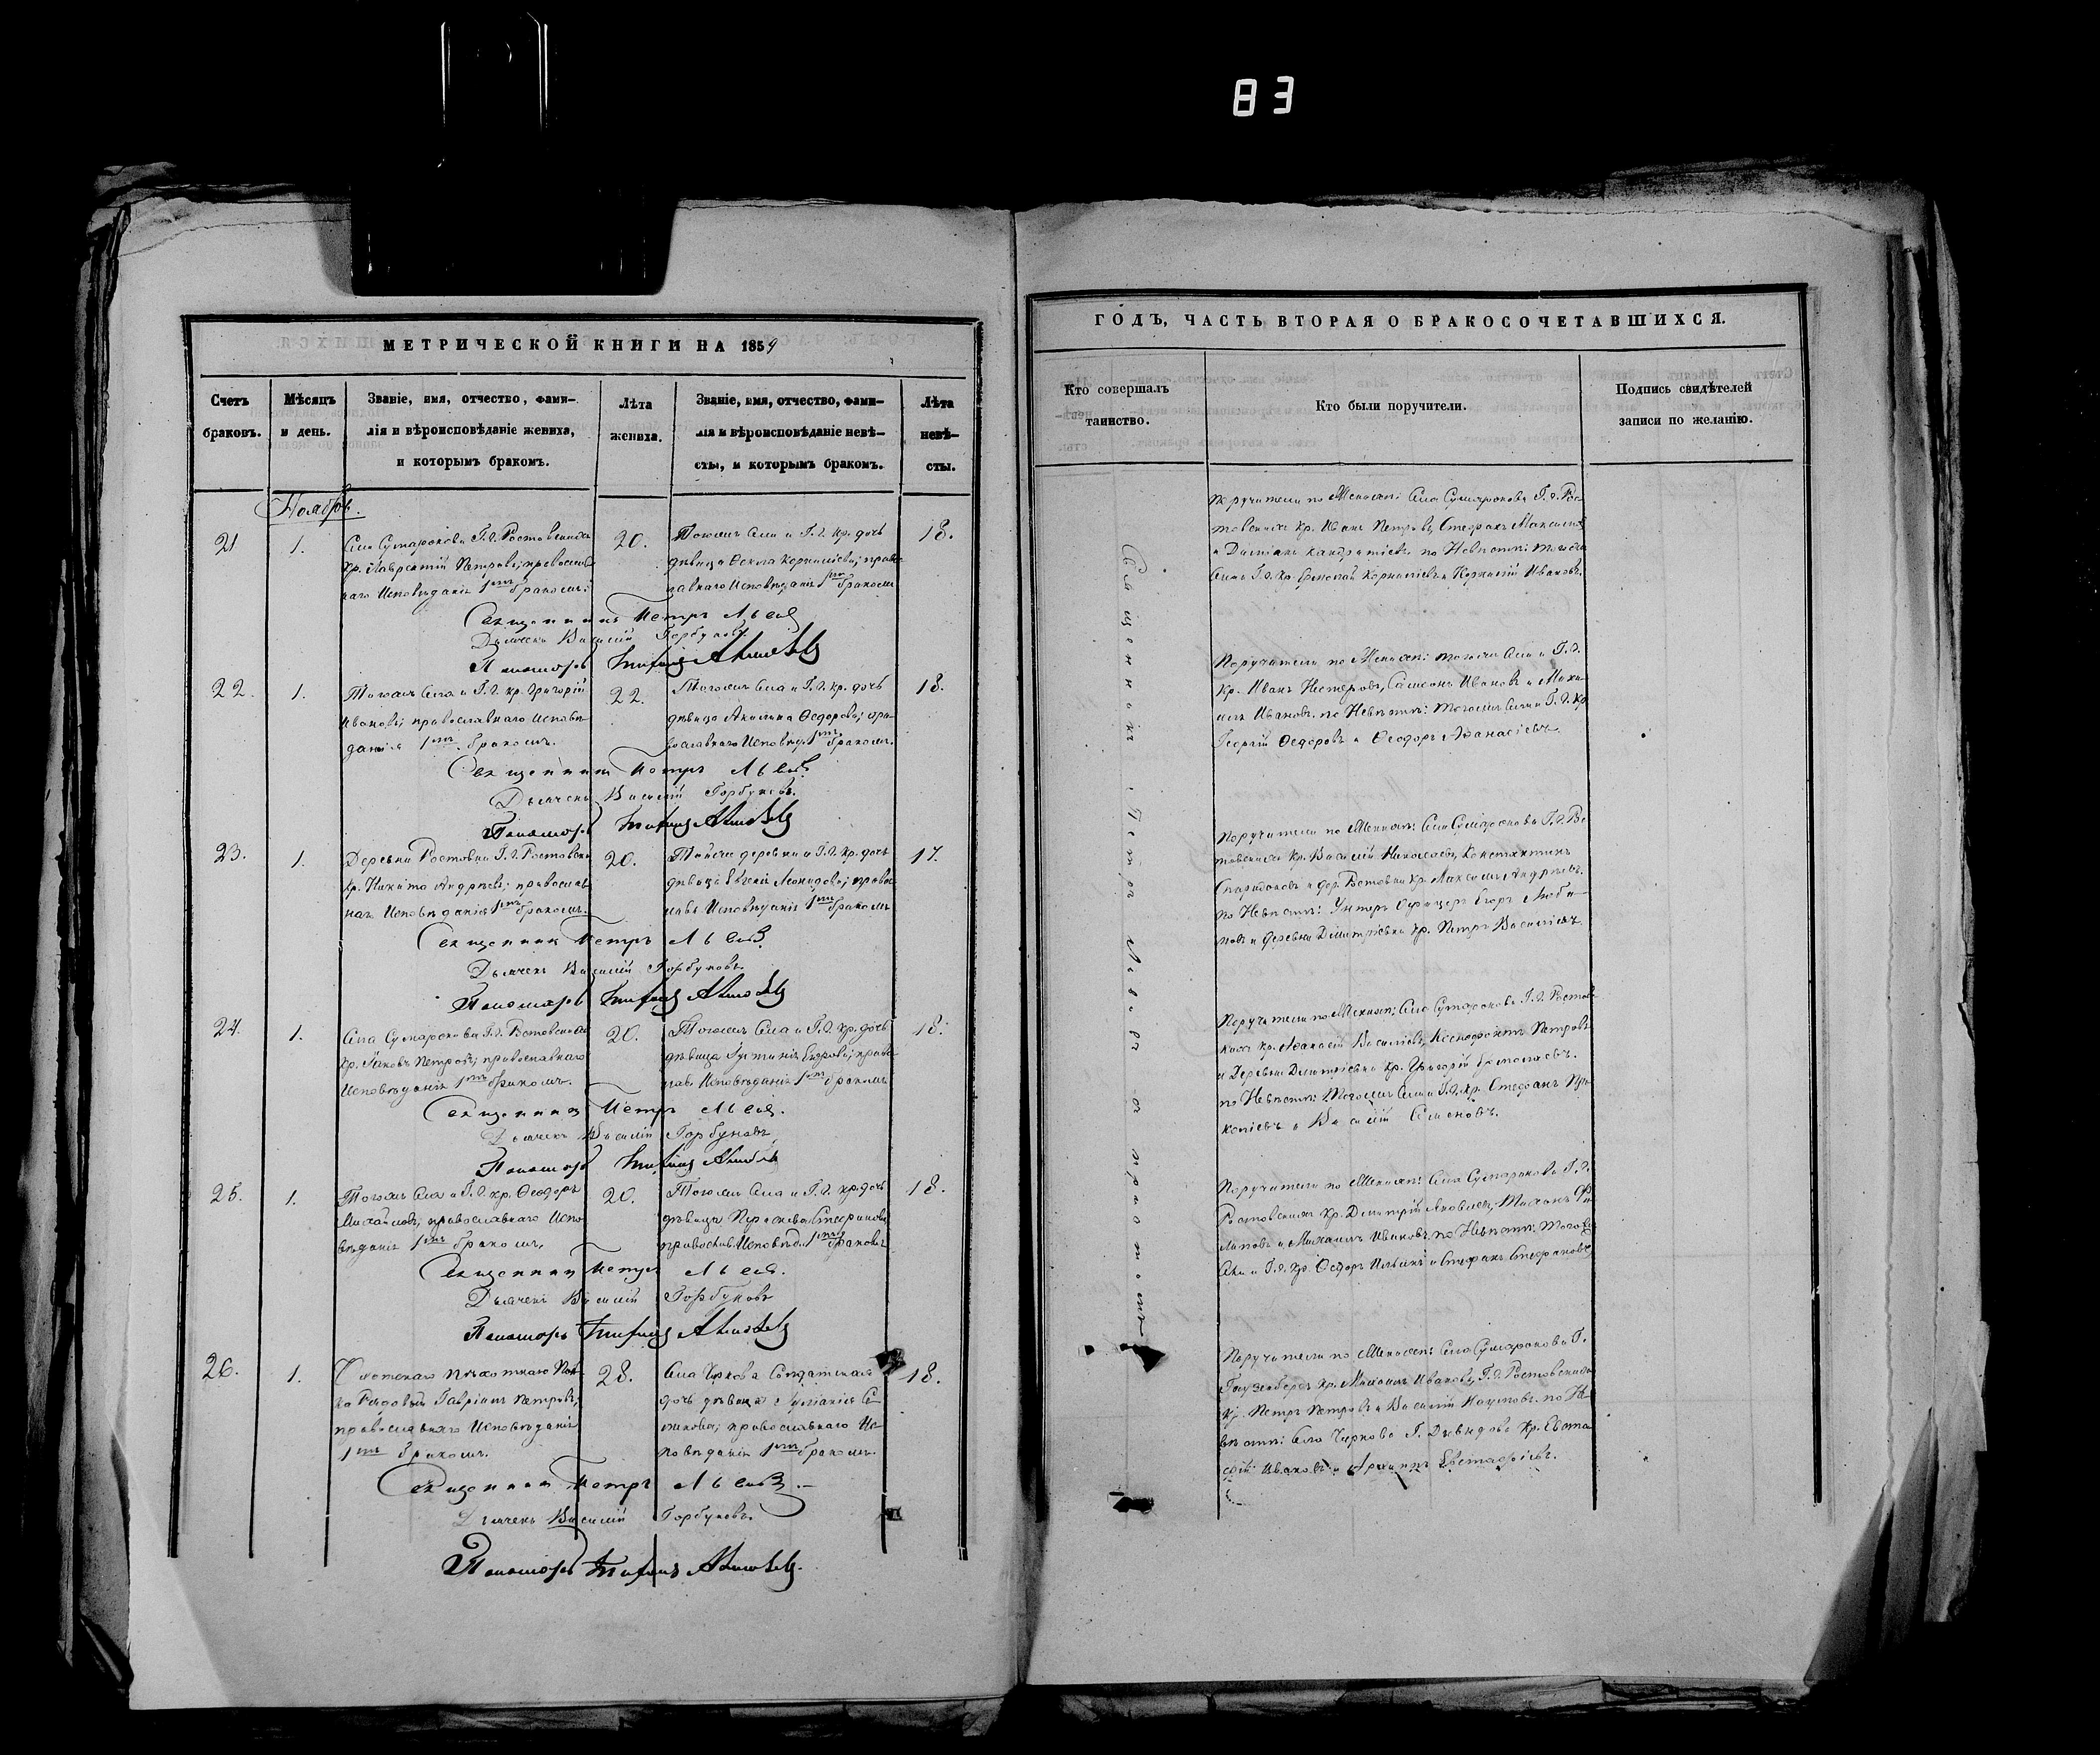 83
МЕТРИЧЕСКОЙ КНИГИ НА 1859
Счетъ браковъ.
Мѣсяцъ и день.
Званіе, имя, отчество, фами-
лія и вѣроисповѣданіе жениха,
и которымъ бракомъ.
Лѣта жениха.
Званіе, имя, отчество, фами-
лія и вѣроисповѣданіе невѣ-
сты, и которымъ бракомъ.
Лѣта невѣ-
сты.
Ноябрь.
21
1.
Села Сумарокова Г. д. Ростовскихъ
Кр. Лаврентій Петровъ; православ
наго Исповѣданія 1мъ бракомъ.
20.
Тогожъ Села и Г. д. кр. дочь
дѣвица Ѳекла Корниліева; право
славнаго Исповѣданія 1мъ бракомъ
18.
Священникъ Петръ Львовъ
Дьячекъ Василій Горбуновъ.
Пономарь
22.
1.
Тогожъ Села и Г. д. кр. Григорій
Ивановъ; православнаго исповѣ-
данія 1мъ бракомъ.
22.
Тогожъ Села и Г. д. кр. дочь
дѣвица Акилина Ѳедорова; пра-
вославнаго Исповѣд. 1мъ бракомъ.
18.
Священникъ Петръ Львовъ
Дьячекъ Василій Горбуновъ.
Пономарь
23.
1.
Деревни Ростовки Г. д. Ростовски
Кр. Никита Андреевъ; православ
наго Исповѣданія 1мъ бракомъ.
20.
Тойже деревни и Г. д. кр. дочь
дѣвица Евгенія Леонидова; право
славн. Исповѣданія 1мъ бракомъ
17.
Священникъ Петръ Львовъ.
Дьячекъ Василій Горбуновъ.
Пономарь
24.
1.
Села Сумарокова Г. д. Ростовскихъ
Кр. Іаковъ Петровъ; православнаго
Исповѣданія 1мъ бракомъ.
20.
Тогожъ Села и Г. д. кр. дочь
дѣвица Іустинія Егорова; право
слав. Исповѣданія 1мъ бракомъ
18.
Священникъ Петръ Львовъ.
Дьячекъ Василій Горбуновъ
Пономарь
25.
1.
Тогожъ Села и Г. д. кр. Ѳеодоръ
Михайловъ; православнаго Испо-
вѣданія 1мъ бракомъ.
20.
Тогожъ Села и Г. д. кр. дочь
дѣвица Параскева Стефанова
православ. Исповѣд. 1мъ бракомъ
18.
Священникъ Петръ Львовъ.
Дьячекъ Василій Горбуновъ
Пономарь
26.
1.
пѣхотнаго Пол-
ка Рядовый Гавріилъ Петровъ;
православнаго Исповѣданія
1мъ бракомъ.
28.
Села Чиркова Солдатская
дочь дѣвица Се-
православнаго Ис-
повѣданія 1мъ бракомъ.
18.
Священникъ Петръ Львовъ.
Дьячекъ Василій Горбуновъ.
Пономарь
ГОДЪ, ЧАСТЬ ВТОРАЯ О БРАКОСОЧЕТАВШИХСЯ.
Кто совершалъ
таинство.
Кто были поручители.
Подпись свидѣтелей
записи по желанію.
Священникъ Петръ Львовъ
Поручители по Женихѣ: Села Сумарокова Г. д. Рос-
товскихъ Кр. Иванъ Петровъ, Стефанъ Максимовъ
и Даміанъ Кандратіевъ. по Невѣстѣ: тогожъ
Села Г. д. Кр. Ермолай Корниліевъ и Корнилій Ивановъ.
Поручители по Женихѣ: тогожъ Села и Г. д.
Кр. Иванъ Нестеровъ, Самсонъ Ивановъ и Миха-
илъ Ивановъ. по Невѣстѣ: тогожъ Села и Г. д. Кр.
Георгій Ѳедоровъ и Ѳеодоръ Аѳанасіевъ.
Поручители по Женихѣ: Села Сумарокова Г. д. Рос
товскихъ Кр. Василій Николаевъ, Константинъ
Спиридоновъ и дер. Ростовки кр. Максимъ Андреевъ.
по Невѣстѣ: Унтеръ Офицеръ Егоръ Люби-
мовъ и деревни Димитріевки Кр. Петръ Василіевъ.
Поручители по Женихѣ: Села Сумарокова Г. д. Ростовс
кихъ Кр. Аѳанасій Василіевъ, Ксенофонтъ Петровъ
и Деревни Димитріевки Кр. Григорій Ермолаевъ.
по Невѣстѣ: Тогожъ Села и Г. д. Кр. Стефанъ Про-
копіевъ и Василій Семеновъ.
Поручители по Женихѣ: Села Сумарокова Г. д.
Ростовскихъ Кр. Димитрій Яковлевъ, Тихонъ Фи-
липовъ и Михаилъ Ивановъ. по Невѣстѣ: тогожъ
Села и Г. д. Кр. Ѳедоръ Ильинъ и Стефанъ Стефановъ
Поручители по Женихѣ: Села Сумарокова Г.
Кр. Михаилъ Ивановъ, Г. д. Ростовскихъ
Кр. Петръ Петровъ и Василій Наумовъ. по Не-
вѣстѣ: Села Чиркова Г. Давыдова Кр. Евста
фій Ивановъ и Архипъ Евстафіевъ.